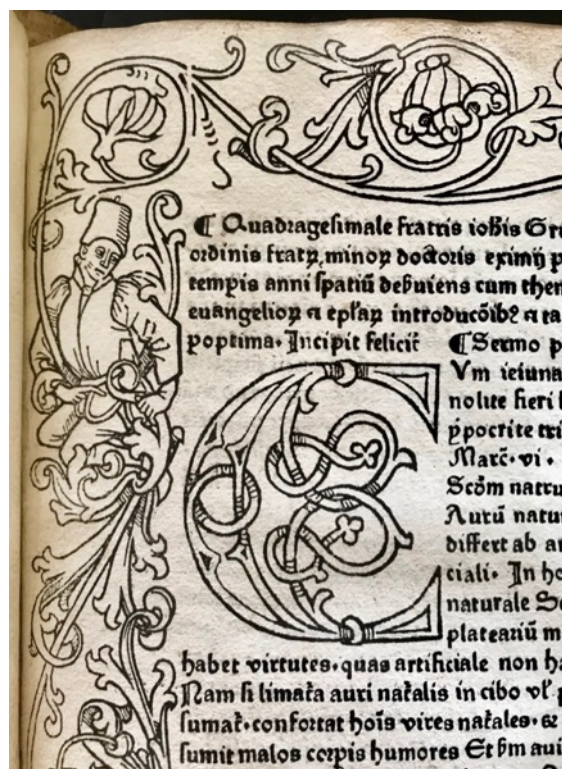 ¶ Quadragesimale fratris ioh̄is Gri
ordinis fratꝝ minoꝝ doctoris eximij p
tempis anni spatiū deſuiens cum them
euangelioꝝ ⁊ epl'aꝝ introducōibꝰ ⁊ ta
poptima. Incipit felicit̄
¶ Sermo p
C Vm ieiuna
nolite fieri
ypocrite tri
Marc̄. vi .
Scd̄m natru
Aurū natur
differt ab ar
ciali. In ho
naturale Se
plateariū m
habet virtutes. quas artificiale non ha
Nam si limat̄a auri nat̄alis in cibo vl' p
sumat̄. confortat hoīs vires nat̄ales. ⁊
sumit malos corpis humores Et ſm aui